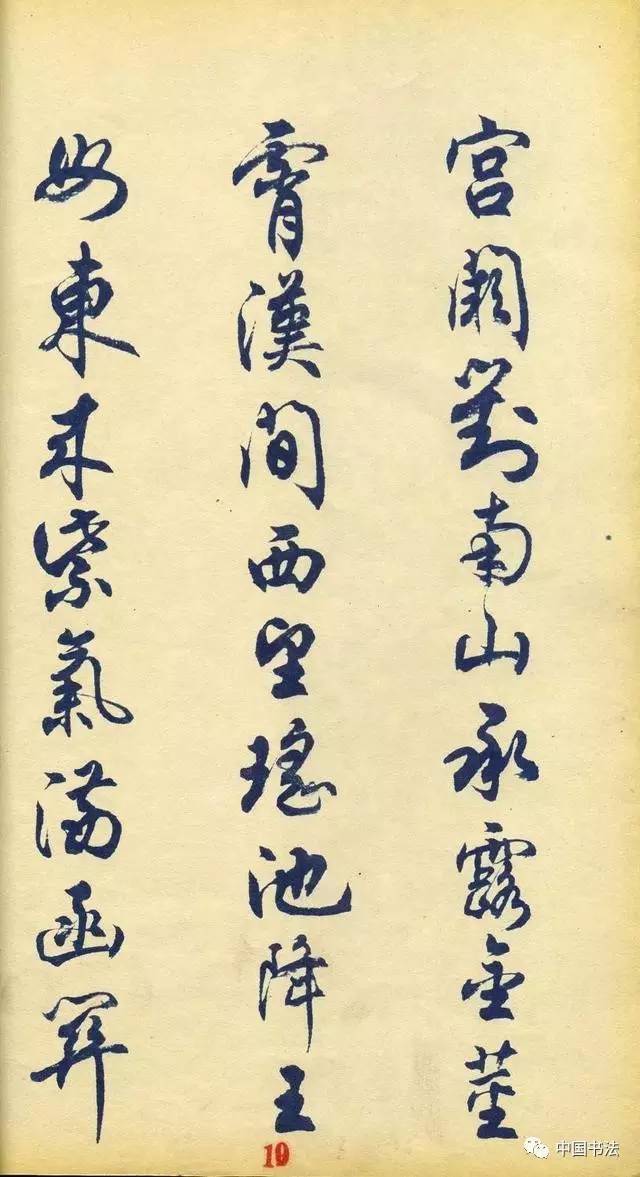 宫闕對南山承露金莖
霄漢間西望瑤池降王
母東来紫氣滿函關
10
中国书法